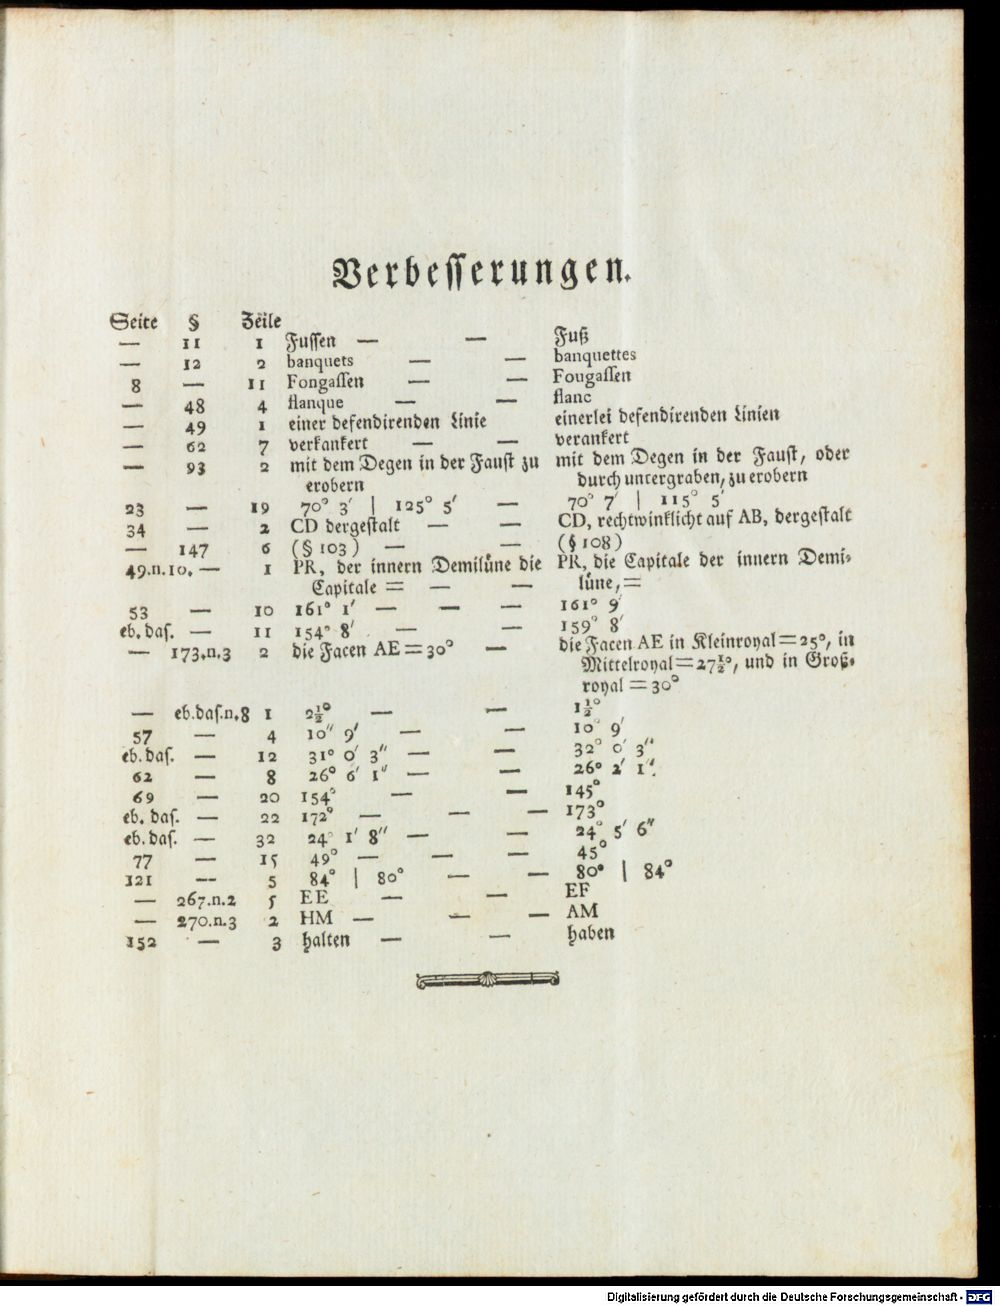 Verbesserungen.
Seite § Zeile
— 11 1 Fussen — — Fuß
— 12 2 banquets — — banquettes
8 — 11 Fongassen — — Fougassen
— 48 4 flanque — — flanc
— 49 1 einer defendirenden Linie einerlei defendirenden Linien
— 62 7 verkankert — — verankert
— 93 2 mit dem Degen in der Faust zu mit dem Degen in der Faust, oder
erobern durch untergraben, zu erobern
23 — 19 70° 3′ | 125° 5′ — 70° 7′ | 115° 5′
34 — 2 CD dergestalt — — CD, rechtwinklicht auf AB, dergestalt
— 147 6 (§ 103) — — (§ 108)
49.n.10. — 1 PR, der innern Demilüne die PR, die Capitale der innern Demi-
Capitale = — — lüne, =
53 — 10 161° 1′ — — — 161° 9′
eb. das. — 11 154° 8′ — — 159° 8′
— 173.n.3 2 die Facen AE = 30° — die Facen AE in Kleinroyal = 25°, in
Mittelroyal = 27½°, und in Groß-
royal = 30°
— eb.das.n.8 1 2½° — — 1½°
57 — 4 10″ 9′ — — 10° 9′
eb. das. — 12 31° 0′ 3″ — — 32° 0′ 3″
62 — 8 26° 6′ 1″ — — 26° 2′ 1″.
69 — 20 154° — — 145°
eb. das. — 22 172° — — — 173°
eb. das. — 32 24° 1′ 8″ — — 24° 5′ 6″
77 — 15 49° — — — 45°
121 — 5 84° | 80° — — 80° | 84°
— 267.n.2 5 EE — — EF
— 270.n.3 2 HM — — — AM
152 — 3 halten — — haben
Digitalisierung gefördert durch die Deutsche Forschungsgemeinschaft - DFG